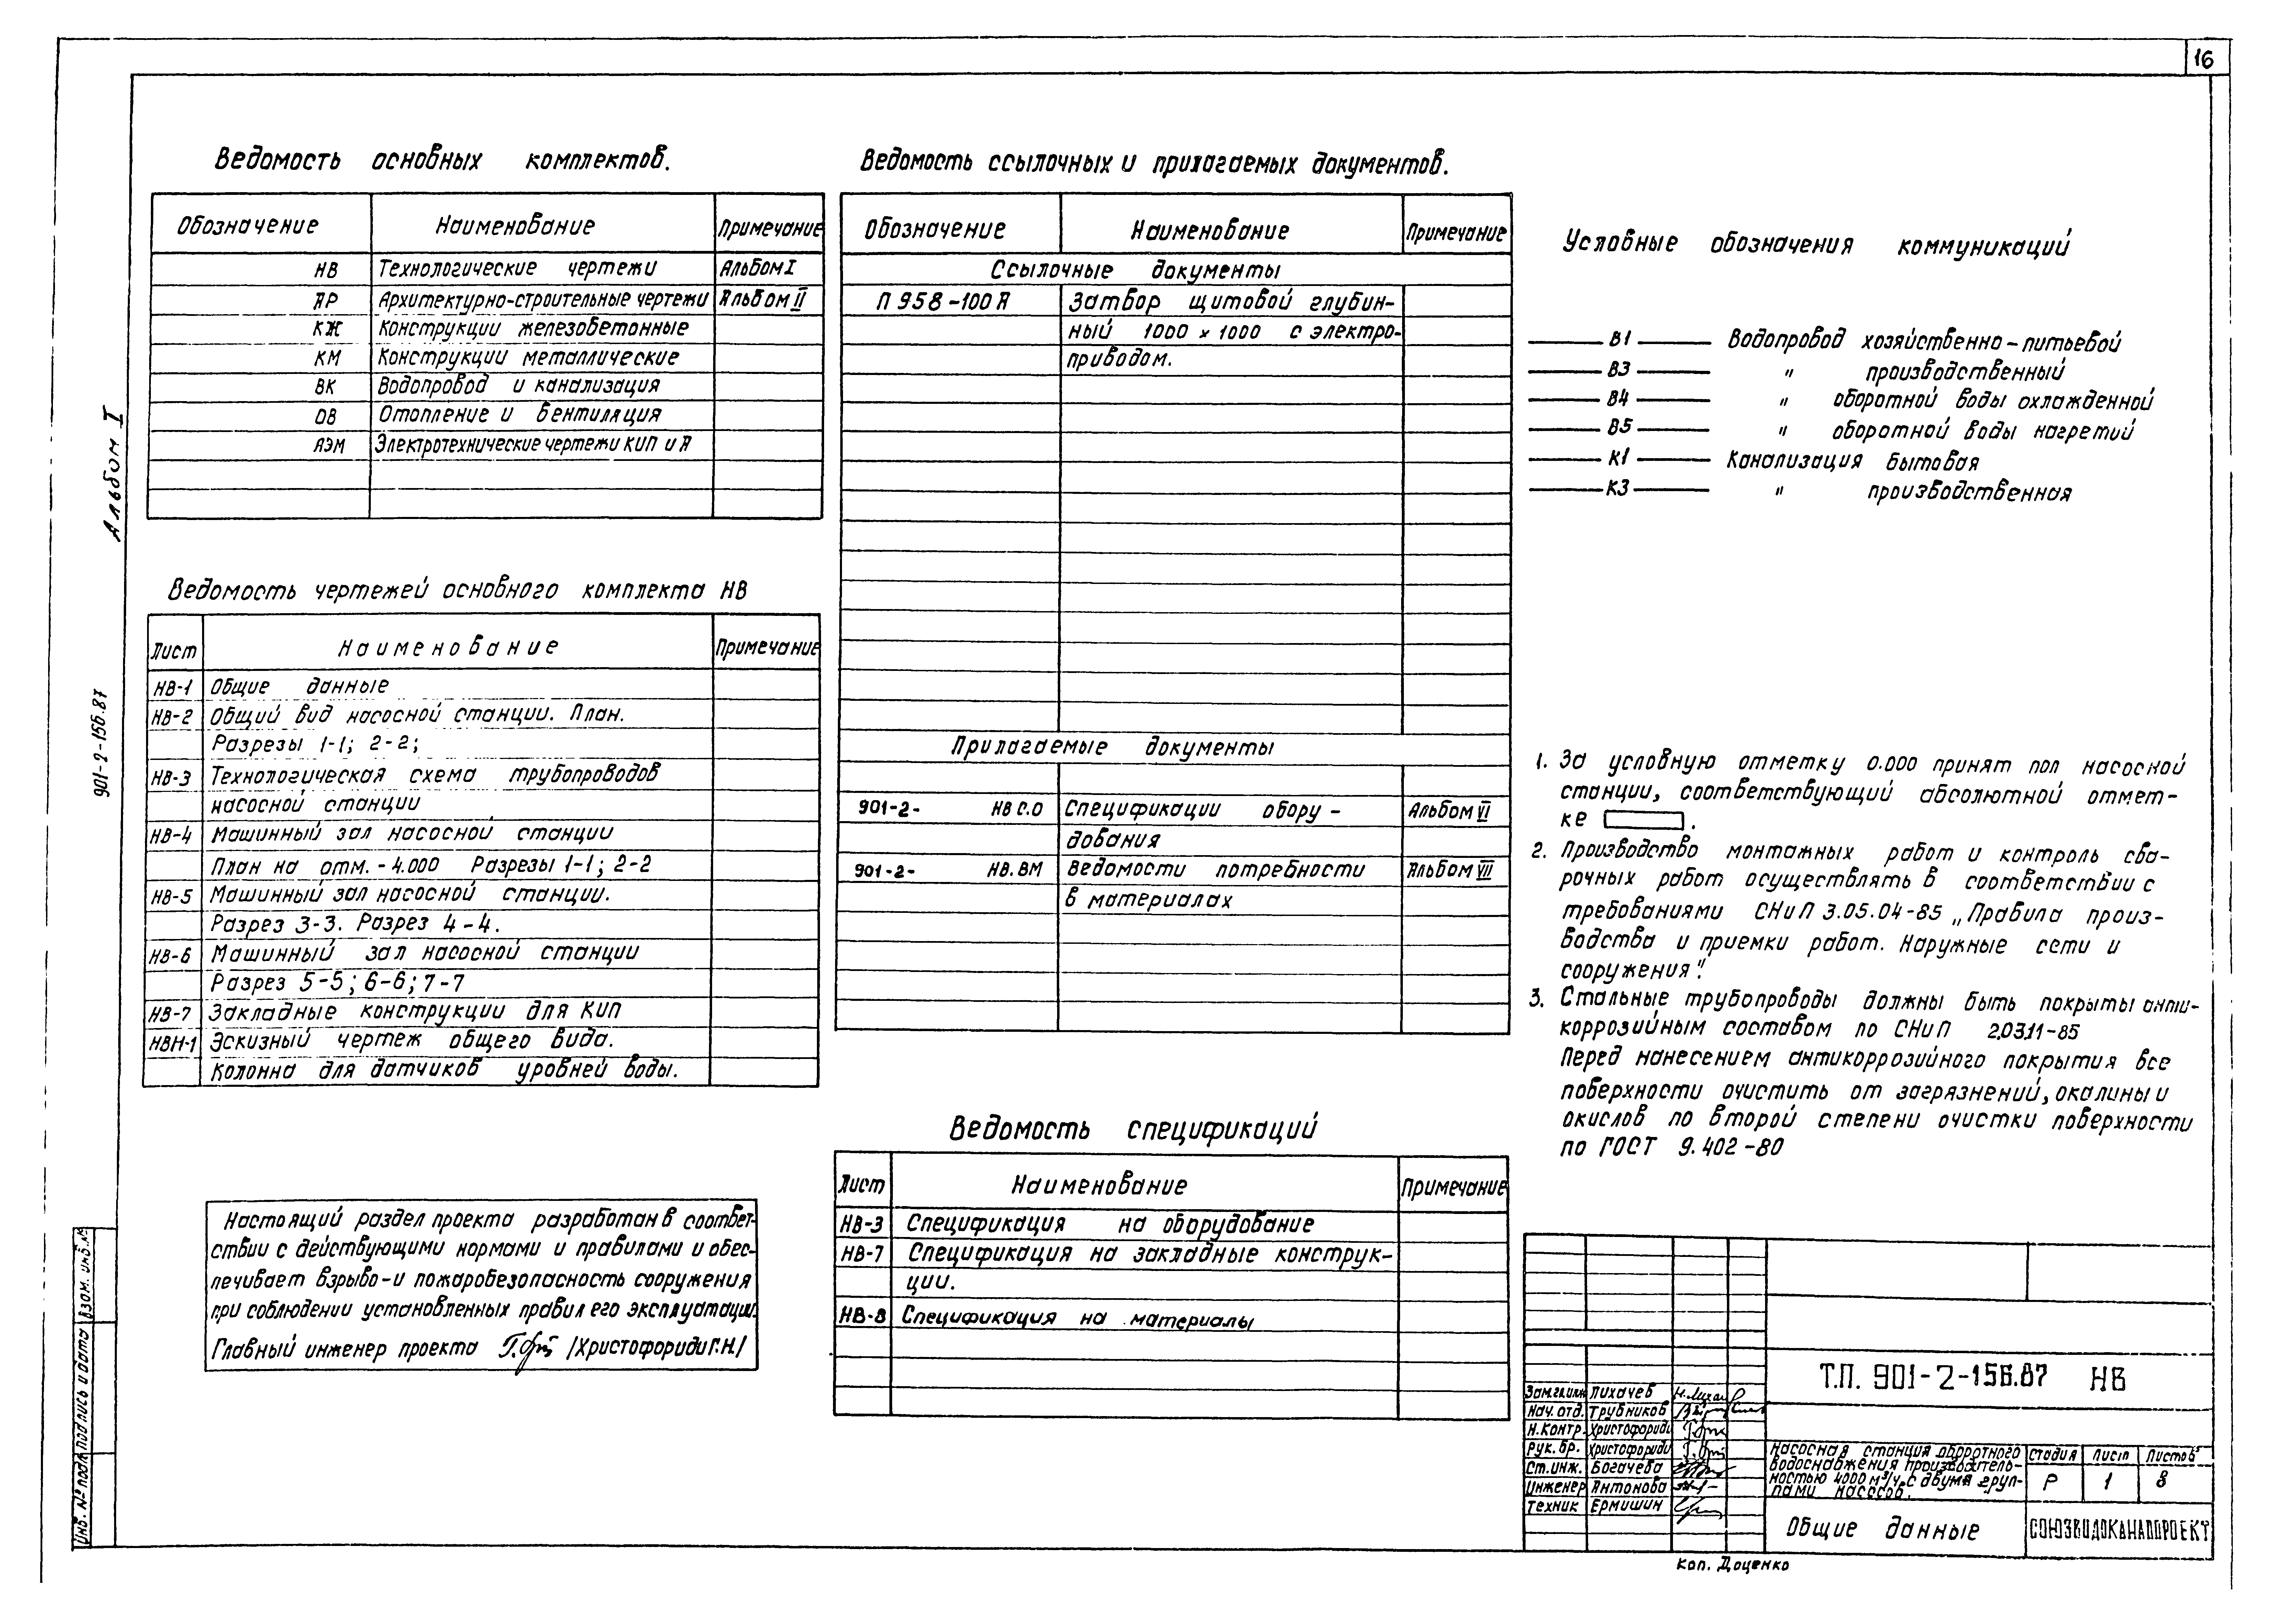 16
Ведомость основных комплектов.
Обозначение Наименование Примечание
НВ Технологические чертежи Альбом I
АР Архитектурно-строительные чертежи Альбом II
КЖ Конструкции железобетонные
КМ Конструкции металлические
ВК Водопровод и канализация
ОВ Отопление и вентиляция
АЭМ Электротехнические чертежи КИП и А
Ведомость чертежей основного комплекта НВ
Лист Наименование Примечание
НВ-1 Общие данные
НВ-2 Общий вид насосной станции. План.
Разрезы 1-1; 2-2;
НВ-3 Технологическая схема трубопроводов
насосной станции
НВ-4 Машинный зал насосной станции
План на отм. -4.000 Разрезы 1-1; 2-2
НВ-5 Машинный зал насосной станции.
Разрез 3-3. Разрез 4-4.
НВ-6 Машинный зал насосной станции
Разрез 5-5; 6-6; 7-7
НВ-7 Закладные конструкции для КИП
НВН-1 Эскизный чертеж общего вида.
Колонна для датчиков уровней воды.
Настоящий раздел проекта разработан в соответ-
ствии с действующими нормами и правилами и обес-
печивает взрыво-и пожаробезопасность сооружения
при соблюдении установленных правил его эксплуатации.
Главный инженер проекта /Христофориди Г.Н./
Ведомость ссылочных и прилагаемых документов.
Обозначение Наименование Примечание
Ссылочные документы
П 958-100 А Затвор щитовой глубин-
ный 1000 x 1000 с электро-
приводом.
Прилагаемые документы
901-2- НВ С.О Спецификации обору-
дования Альбом VI
901-2- НВ.ВМ Ведомости потребности
в материалах Альбом VII
Ведомость спецификаций
Лист Наименование Примечание
НВ-3 Спецификация на оборудование
НВ-7 Спецификация на закладные конструк-
ции.
НВ-8 Спецификация на материалы
Условные обозначения коммуникаций
В1 Водопровод хозяйственно-питьевой
В3 " производственный
В4 " оборотной воды охлажденной
В5 " оборотной воды нагретий
К1 Канализация бытовая
К3 " производственная
1. За условную отметку 0.000 принят пол насосной
станции, соответствующий абсолютной отмет-
ке .
2. Производство монтажных работ и контроль сва-
рочных работ осуществлять в соответствии с
требованиями СНиП 3.05.04-85 „Правила произ-
водства и приемки работ. Наружные сети и
сооружения".
3. Стальные трубопроводы должны быть покрыты анти-
коррозийным составом по СНиП 2.03.11-85
Перед нанесением антикоррозийного покрытия все
поверхности очистить от загрязнений, окалины и
окислов по второй степени очистки поверхности
по ГОСТ 9.402-80
Т.П. 901-2-156.87 НВ
Зам.гл.инж Лихачев
Нач. отд. Трубников
Н.контр. Христофориди
Рук. бр. Христофориди
Ст.инж. Богачева
Инженер Антонова
Техник Ермишин
Насосная станция оборотного
водоснабжения производитель-
ностью 4000 м³/ч. с двумя груп-
пами насосов.
Стадия Лист Листов
Р 1 8
Общие данные
СОЮЗВОДОКАНАЛПРОЕКТ
Коп. Доценко
Альбом I
901-2-156.87
Взам. инв.№
Подпись и дата
Инв. № подл